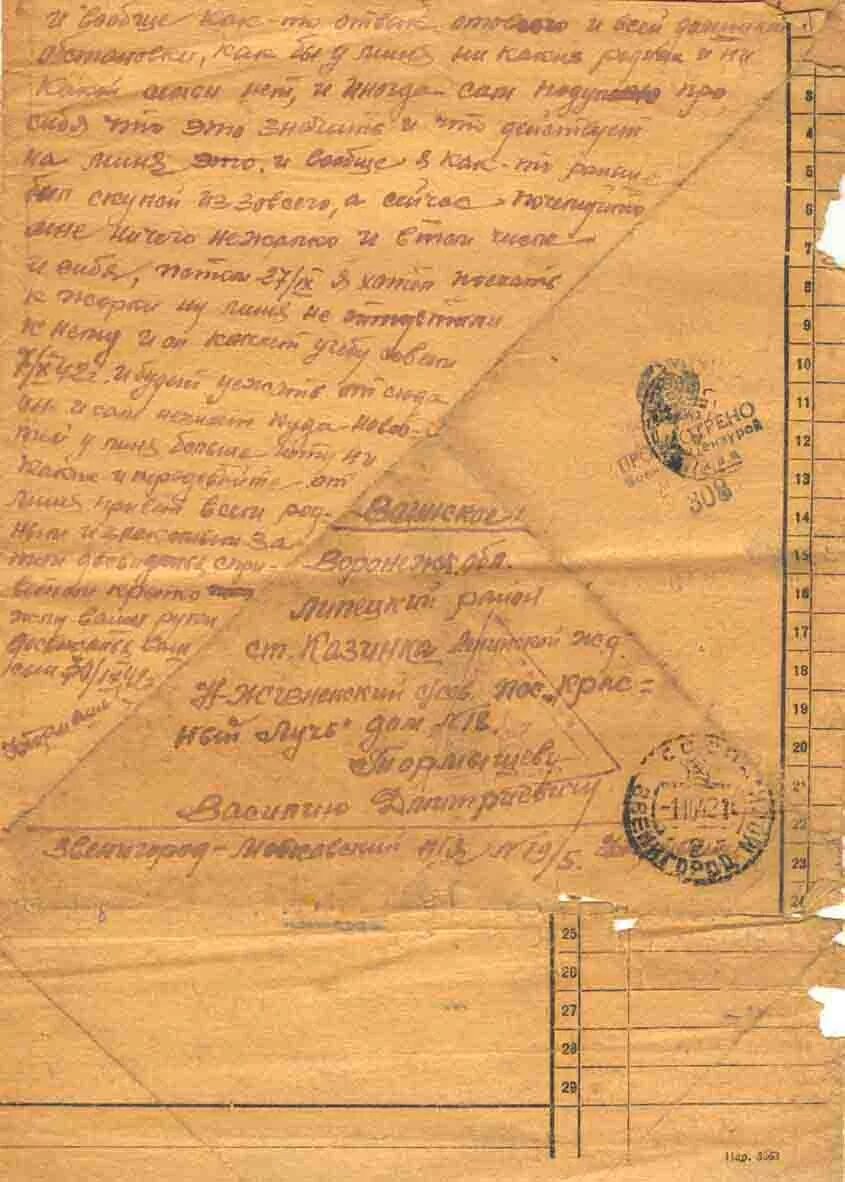 и вообще как-то отвык отовсего и всей домашней
обстановки, как бы у миня ни каких родных и ни
какой семьи нет, и иногда сам подумаю про
сибя что это значить и что действует
на миня это, и вообще я как-то раньше
был скупой из зовсего, а сейчас почемуйто
мне ничего нежалько и втом числе
и сибя, потом 27/IX я хотел поехать
к жорки ну миня не отпустили
к нему и он кончит учебу совсем
42г. и будит уежать от сюда
он и сам незнаит куда новос-
тей у миня больше нету ни
каких и передавайте от
миня привет всем род-
ным и знакомым за
тем досвидание с при-
ветом крепко
жму ваши руки
досвидание Ваш
сын
Воинское
Воронежск обл.
Липецкий район
ст. Казинка Ленинской жд.
пос. "Крас=
ный Лучь" дом №18.
Тормышеву
Василию Дмитриевичу
Звенигород-Московский п/я №19/5.
ПРОСМОТРЕНО
Военной Цензурой
308
ЗВЕНИГОРОД МОСК
3
4
5
6
7
8
9
10
11
12
13
14
15
16
17
18
19
20
21
22
23
24
25
26
27
28
29
Нар.